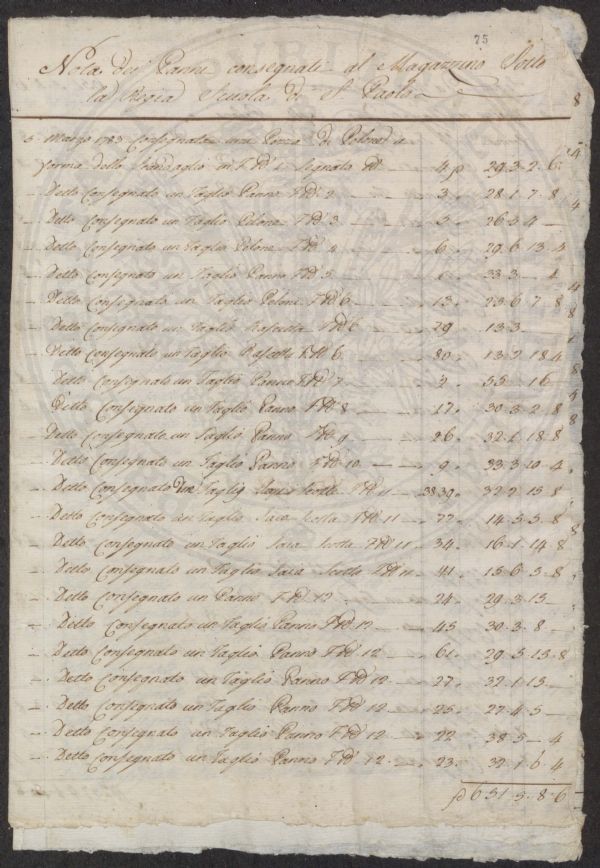 75
Nota dei Panni consegnati al Magazzino Sotto
la Regia Scuola di S. Paolo
5 Marzo 1783 Consegnato una Pezza di Pelone a
forma dello Scandaglio in F.do 1 Segnato N. — 4 p 29.3.2.6
— Detto Consegnato un Taglio Panno F.do 2 — 3. 28.1.7.8
— Detto Consegnato un Taglio Pelone F.do 3 — 5. 26.5.4 —
— Detto Consegnato un Taglio Pelone F.do 4 — 6. 29.6.13.4
— Detto Consegnato un Taglio Panno F.do 5 — 33.3 — 4
— Detto Consegnato un Taglio Pelone F.do 6 — 13. 23.6.7.8
— Detto Consegnato un Taglio F.do 6 — 29. 13.3 —
— Detto Consegnato un Taglio F.do 6 — 80. 13.2.18.4
— Detto Consegnato un Taglio Panno F.do 7 — 2. 55. — 16 —
— Detto Consegnato un Taglio Panno F.do 8 — 17. 30.3.2.8
— Detto Consegnato un Taglio Panno F.do 9 — 26. 32.1.18.8
— Detto Consegnato un Taglio Panno F.do 10 — 9. 33.3.10.4
— Detto Consegnato Taglio Scotta F.do 11 — 38.39. 32.2.15.8
— Detto Consegnato un Taglio Saia Scotta F.do 11 — 77. 14.5.5.8
— Detto Consegnato un Taglio Saia Scotta F.do 11 — 34. 16.1.14.8
— Detto Consegnato un Taglio Saia Scotta F.do 11 — 41. 15.6.5.8
— Detto Consegnato un Panno F.do 12 — 24. 29.3.15 —
— Detto Consegnato un Taglio Panno F.do 12 — 45. 30.3.8 —
— Detto Consegnato un Taglio Panno F.do 12 — 61. 29.5.13.8
— Detto Consegnato un Taglio Panno F.do 12 — 27. 32.1.15 —
— Detto Consegnato un Taglio Panno F.do 12 — 25. 27.4.5 —
— Detto Consegnato un Taglio Panno F.do 12 — 22. 38.5 — 4
— Detto Consegnato un Taglio Panno F.do 12 — 23. 32.1.6.4
p 651.5.8.6